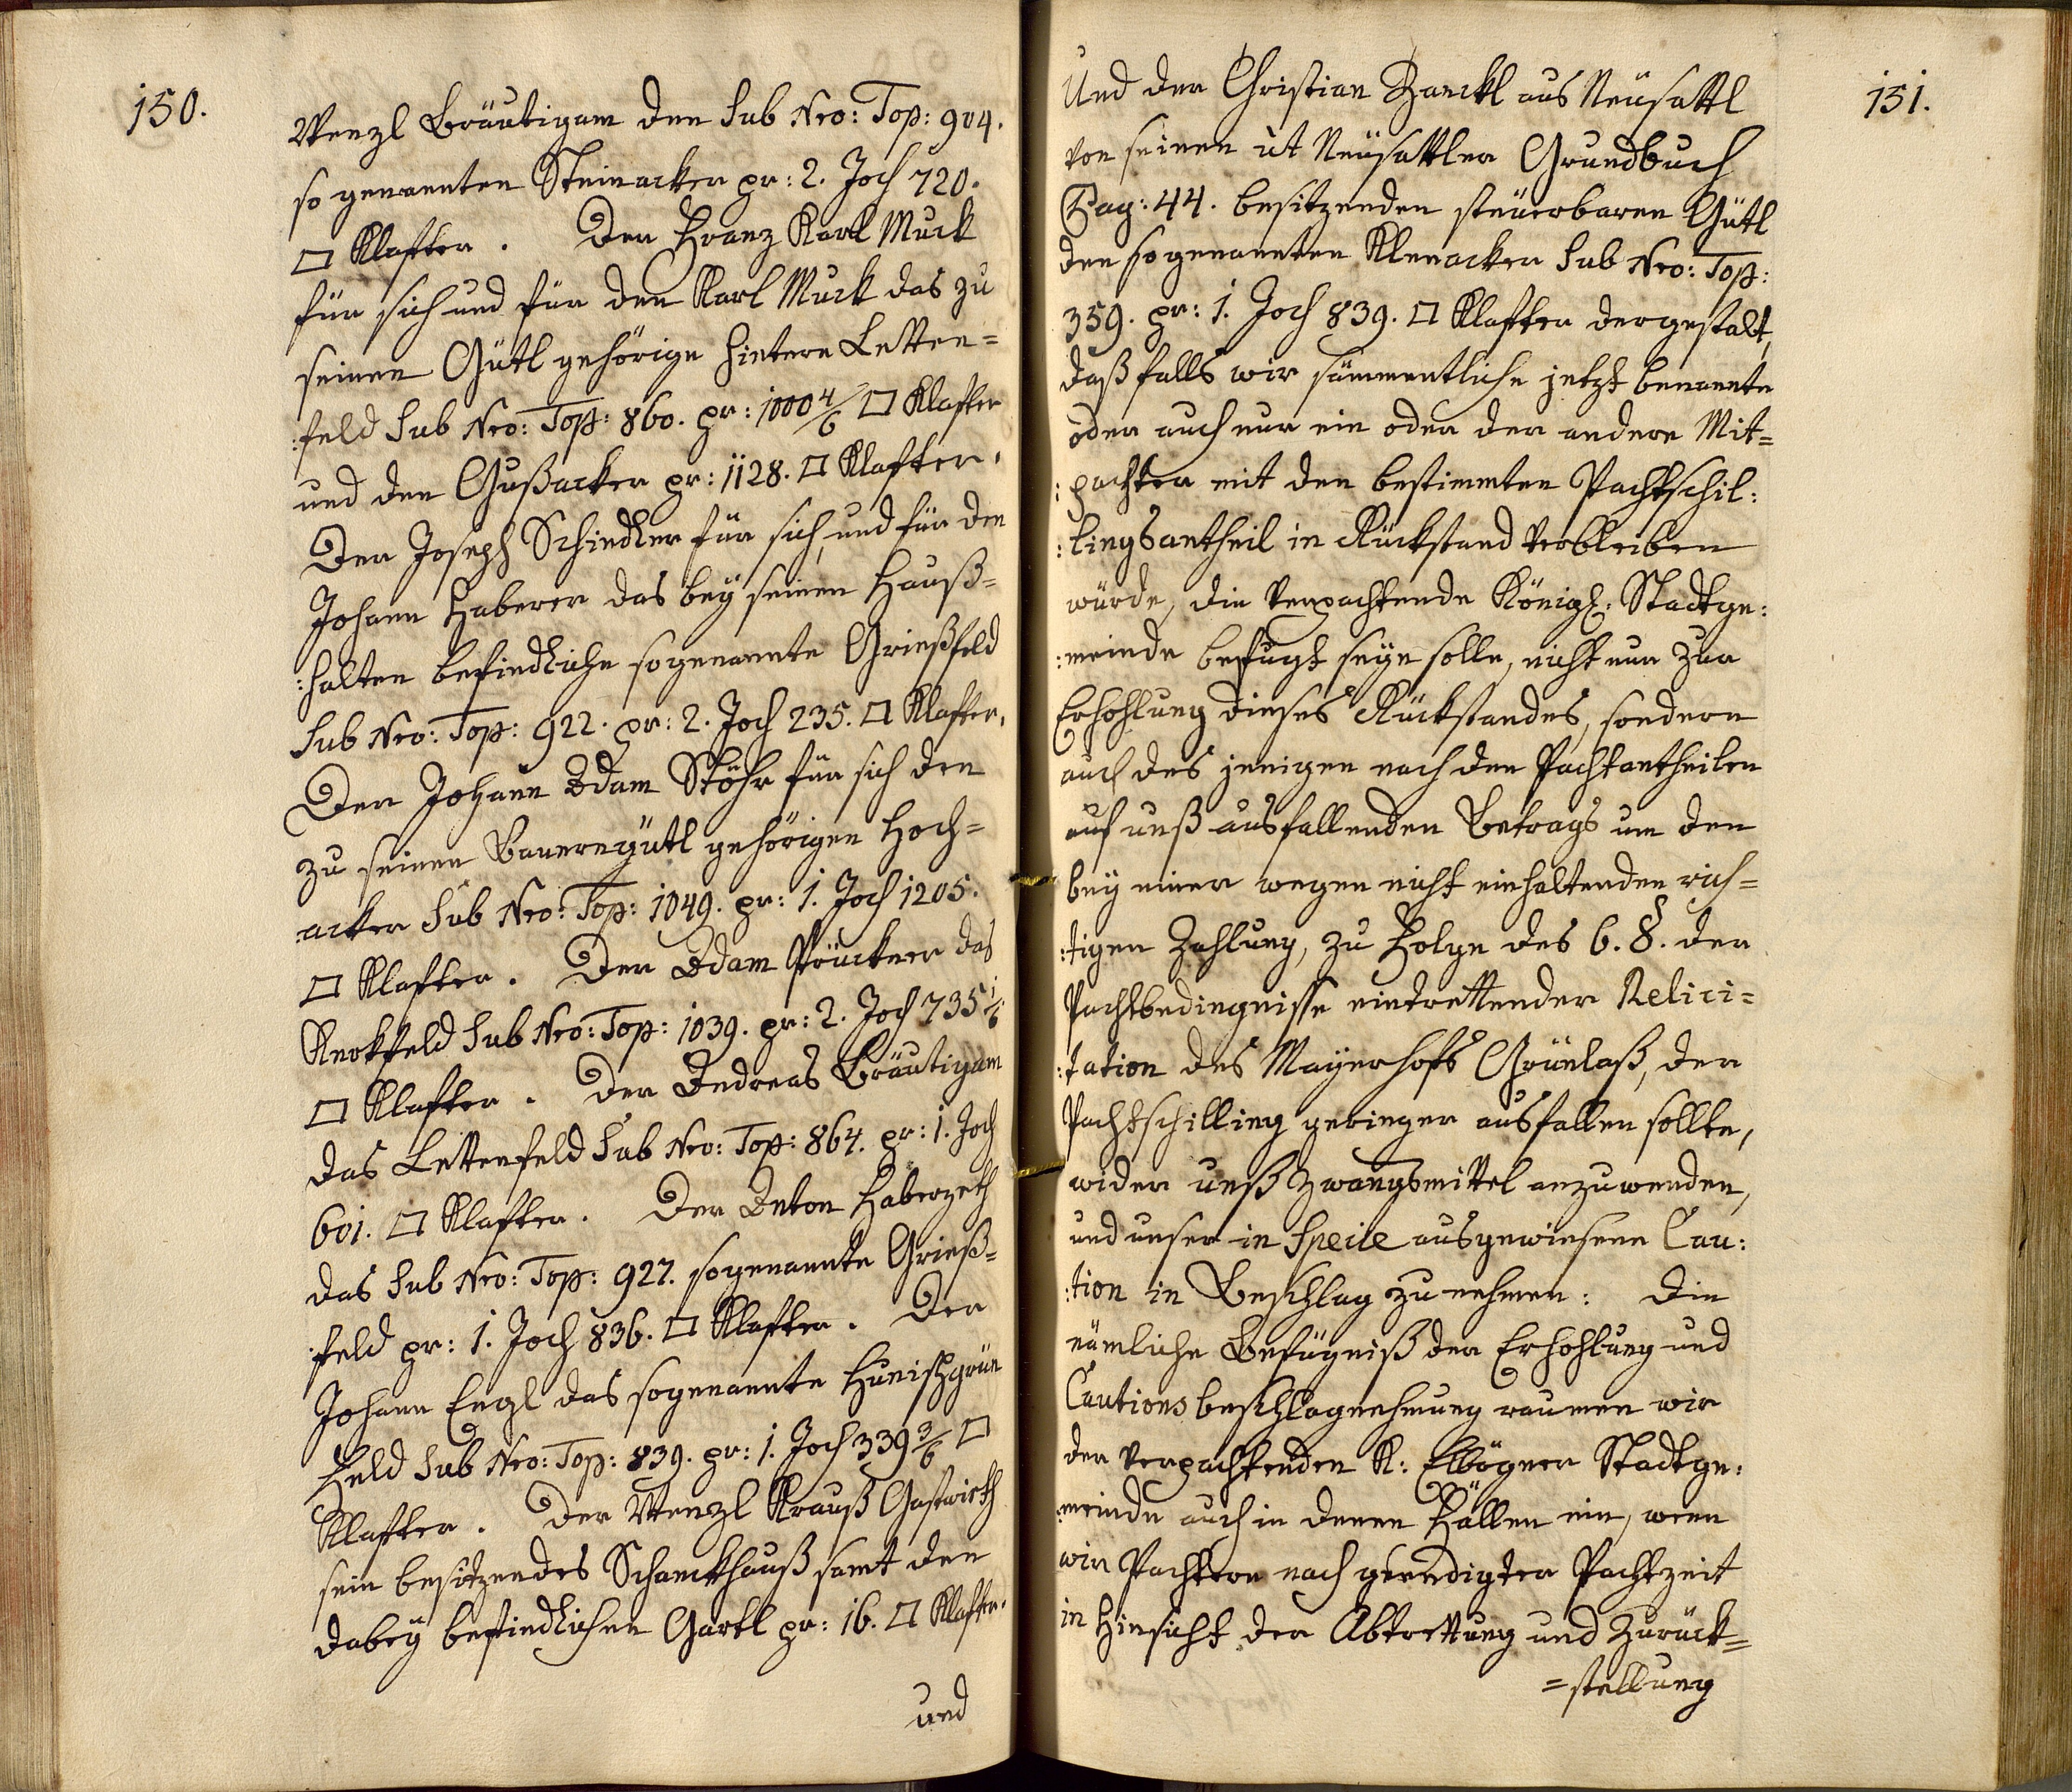 150.
Wenzl Bräutigam den Sub Nro: Top: 904.
so genannten Steinacker pr: 2. Joch 720.
□ Klafter. Der Franz Karl Muck
für sich und für den Karl Muck das zu
seinen Gütl gehörige hintere Letten=
:feld Sub Nro: Top: 860. pr: 1000 4/6 □ Klafter
und den Gußacker pr: 1128. □ Klafter.
Der Joseph Schindler für sich, und für den
Johann Haberer das bey seinen Hauß=
:halten befindliche sogenannte Grießfeld
Sub Nro: Top: 922. pr: 2. Joch 235. □ Klafter.
Der Johann Adam Stöhr für sich den
zu seinen Bauerngütl gehörigen Hoch=
:acker Sub Nro: Top: 1049. pr: 1. Joch 1205.
□ Klafter. Der Adam Pöuckner das
Knockfeld Sub Nro: Top: 1039. pr: 2. Joch 735 1/6
□ Klafter. Der Andreas Bräutigam
das Lettenfeld Sub Nro: Top: 864. pr: 1. Joch
601. □ Klafter. Der Anton Haberzeth
das Sub Nro: Top: 927. sogenannte Grieß=
:feld pr: 1. Joch 836. □ Klafter. Der
Johann Engl das sogenannte Hunischgrün
Feld Sub Nro: Top: 839. pr: 1. Joch 339 3/6 □
Klafter. Der Wenzl Krauß Gastwirth
sein besitzendes Schanckhauß samt den
dabey befindlichen Gartl pr: 16. □ Klafter.
und
151.
Und der Christian Zanckl aus Neüsattl
von seinen ut Neüsattler Grundbuch
Pag: 44. besitzenden steüerbaren Gütl
den sogenannten Klenacker Sub Nro: Top:
359. pr: 1. Joch 839. □ Klafter dergestalt,
daß falls wir sämmentliche jetzt benannte
oder auch nur ein oder der andere Mit=
:pachter mit den bestimmten Pachtschil:
:lingsantheil in Rückstand verbleiben
würde, die verpachtende Königl: Stadtge:
:meinde befugt seyn solle, nicht nur zur
Erhohlung dieses Rückstandes, sondern
auch des jenigen nach den Pachtantheilen
auf unß ausfallenden Betrags um den
bey einer wegen nicht einhaltenden rich=
:tigen Zahlung, zu Folge des 6. §. der
Pachtbedingnisse eintrettender Relici=
:tation des Mayerhofs Grünlaß, der
Pachtschilling geringer ausfallen sollte,
wider unß Zwangsmittel anzuwenden,
und unser in Speile ausgewiesene Cau:
:tion in Beschlag zu nehmen: Die
nämliche Befugniß der Erhohlung und
Cautions beschlagnehmung raumen wir
der verpachtenden K: Elbögner Stadtge:
:meinde auch in denen Fällen ein, wenn
wir Pachtern nach geendigter Pachtzeit
in Hinsicht der Abtrettung und Zurück=
=stellung